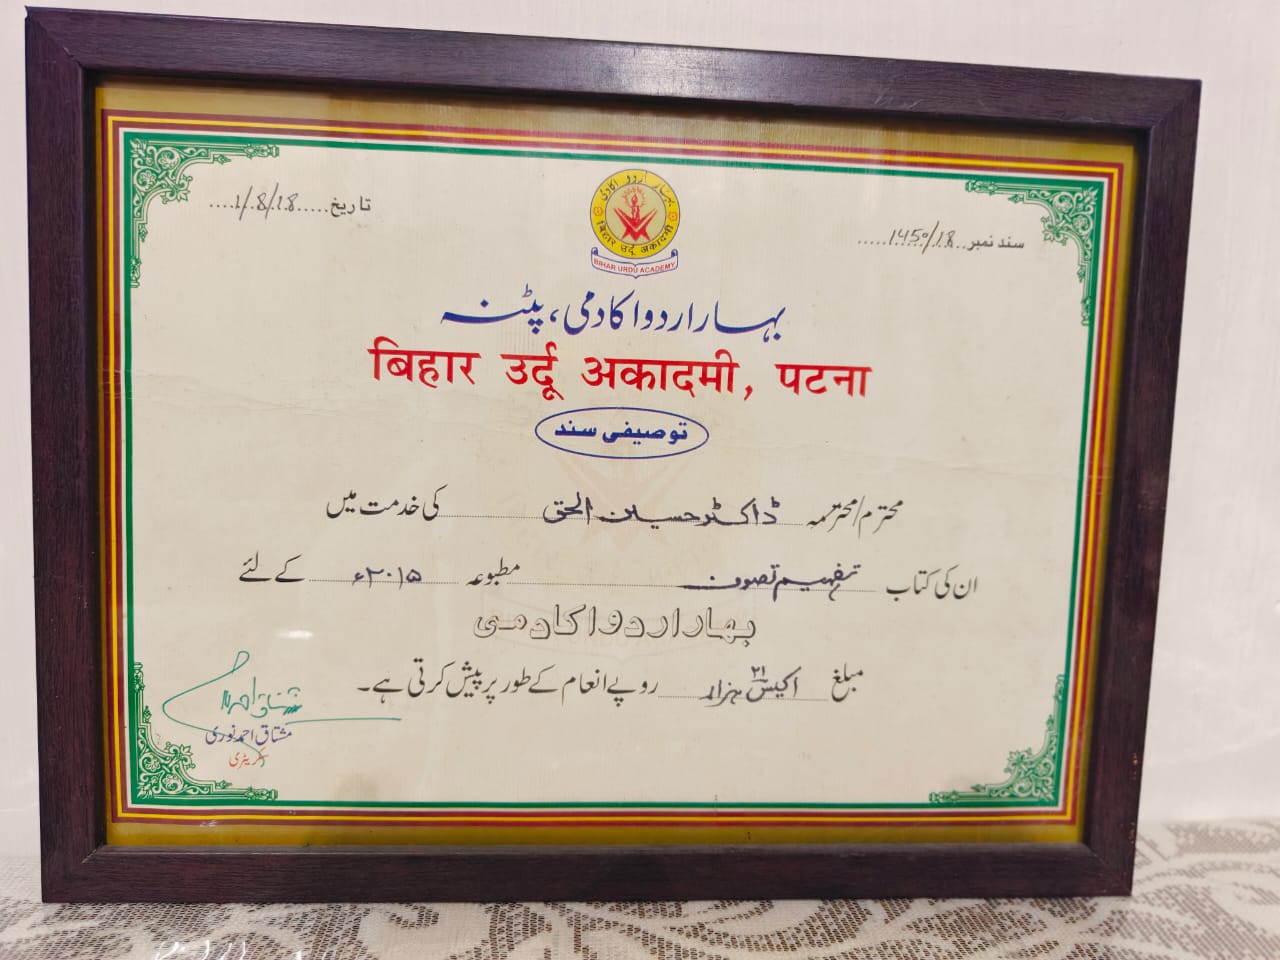 سند نمبر..1450/18.....
تاریخ.....1/8/18....
بہار اردو اکادمی
बिहार उर्दू अकादमी
BIHAR URDU ACADEMY
بہار اردو اکادمی، پٹنہ
बिहार उर्दू अकादमी, पटना
توصیفی سند
محترم/محترمہ ڈاکٹر حسین الحق کی خدمت میں
ان کی کتاب تفہیم تصوف مطبوعہ ۲۰۱۵ء کے لئے
بہار اردو اکادمی
مبلغ اکیس ۲۱ ہزار روپے انعام کے طور پر پیش کرتی ہے۔
مشتاق احمد
مشتاق احمد نوری
سکریٹری